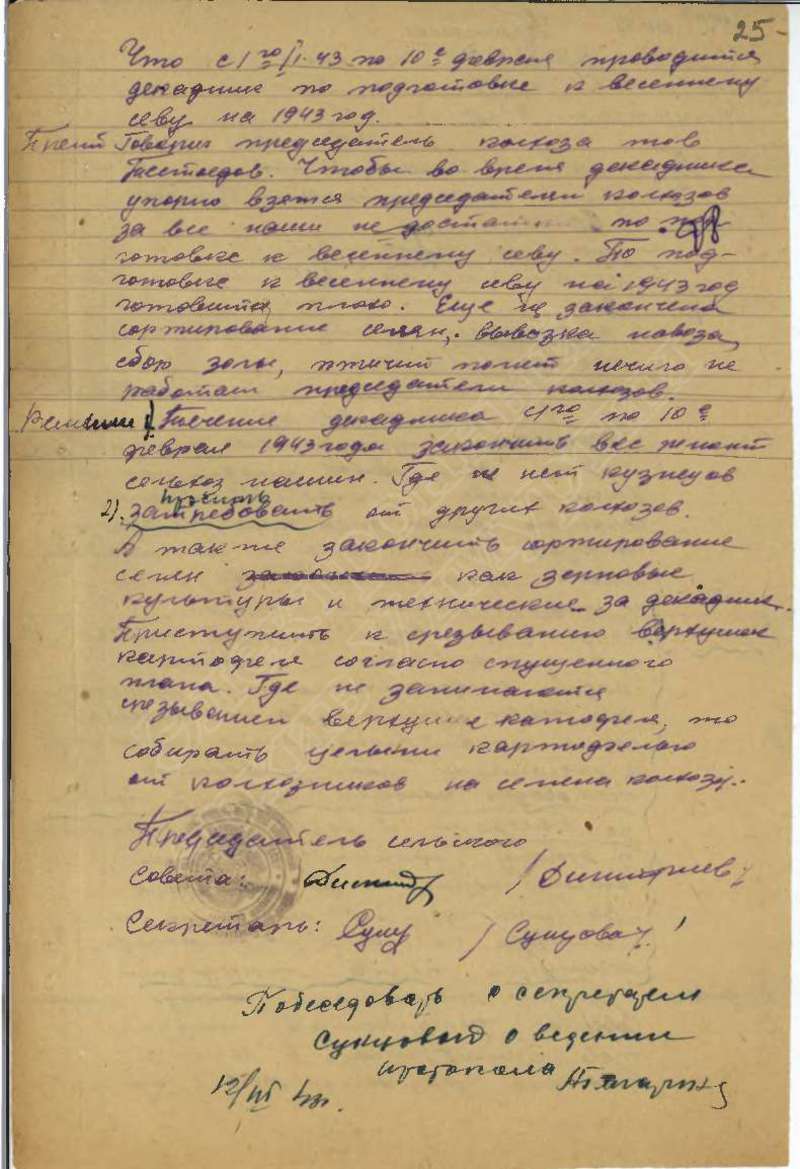 25-
Что с 1го/II-43 по 10е февраля проводится
декадник по подготовке к весеннему
севу на 1943 год.
Прени Говорит председатель колхоза тов
Чтобы во время декадника
упорно взятся председателям колхозов
за все наши не достат по под
готовке к весеннему севу. По под-
готовке к весеннему севу на 1943 год
готовится плохо. Еще не закончена
сортирование семян, вывозка навоза,
сбор золы, птичий помет нечиго не
работали председатели колхозов.
Решили 1) Течение декадника с 1го по 10е
феврал 1943 года закончить все ремонт
сельхоз машин. Где и нет кузнецов
просить
2). затребовать от других колхозов.
А так-же закончить сортирование
семян как зерновые
культуры и технические за декадник.
Приступить к срезыванию верхушек
картофеля согласно спущенного
плана. Где не занимаются
срезыванием верхушке катофеля, то
собирать целыми картофелью
от колхозников на семена колхозу.
Председатель сельского
Совета: /Димитриев/
Секретарь: Сунц /Сунцова/
Побеседовать с секретарем
Сунцовой о ведении
протокола
12/III 43г.